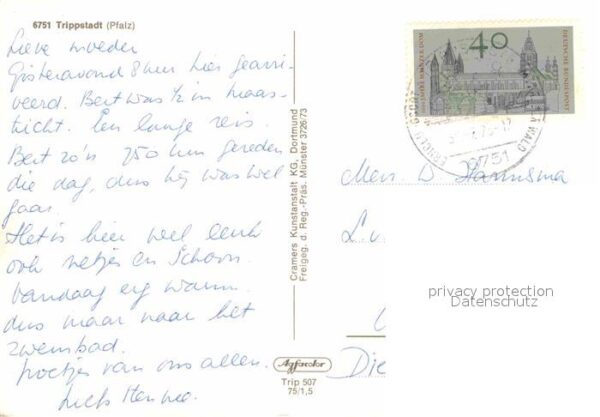 6751 Trippstadt (Pfalz)
Lieve moeder
Gisteravond 8 uur hier gearri-
veerd. Bert was ½ in Maas-
tricht. Een lange reis.
Bert zo'n 750 km gereden
die dag, dus hij was wel
gaar.
Het is hier wel leuk
ook netjes en schoon.
Vandaag erg warm.
dus maar naar het
zwembad.
van ons allen.
Liefs
Cramers Kunstanstalt KG, Dortmund
Freigeg. d. Reg.-Präs. Münster 3726/73
Agfacolor
Trip 507
75/1,5
40
1000 JAHRE MAINZER DOM
DEUTSCHE BUNDESPOST
6751
WALD
Mevr. D
Die
privacy protection
Datenschutz